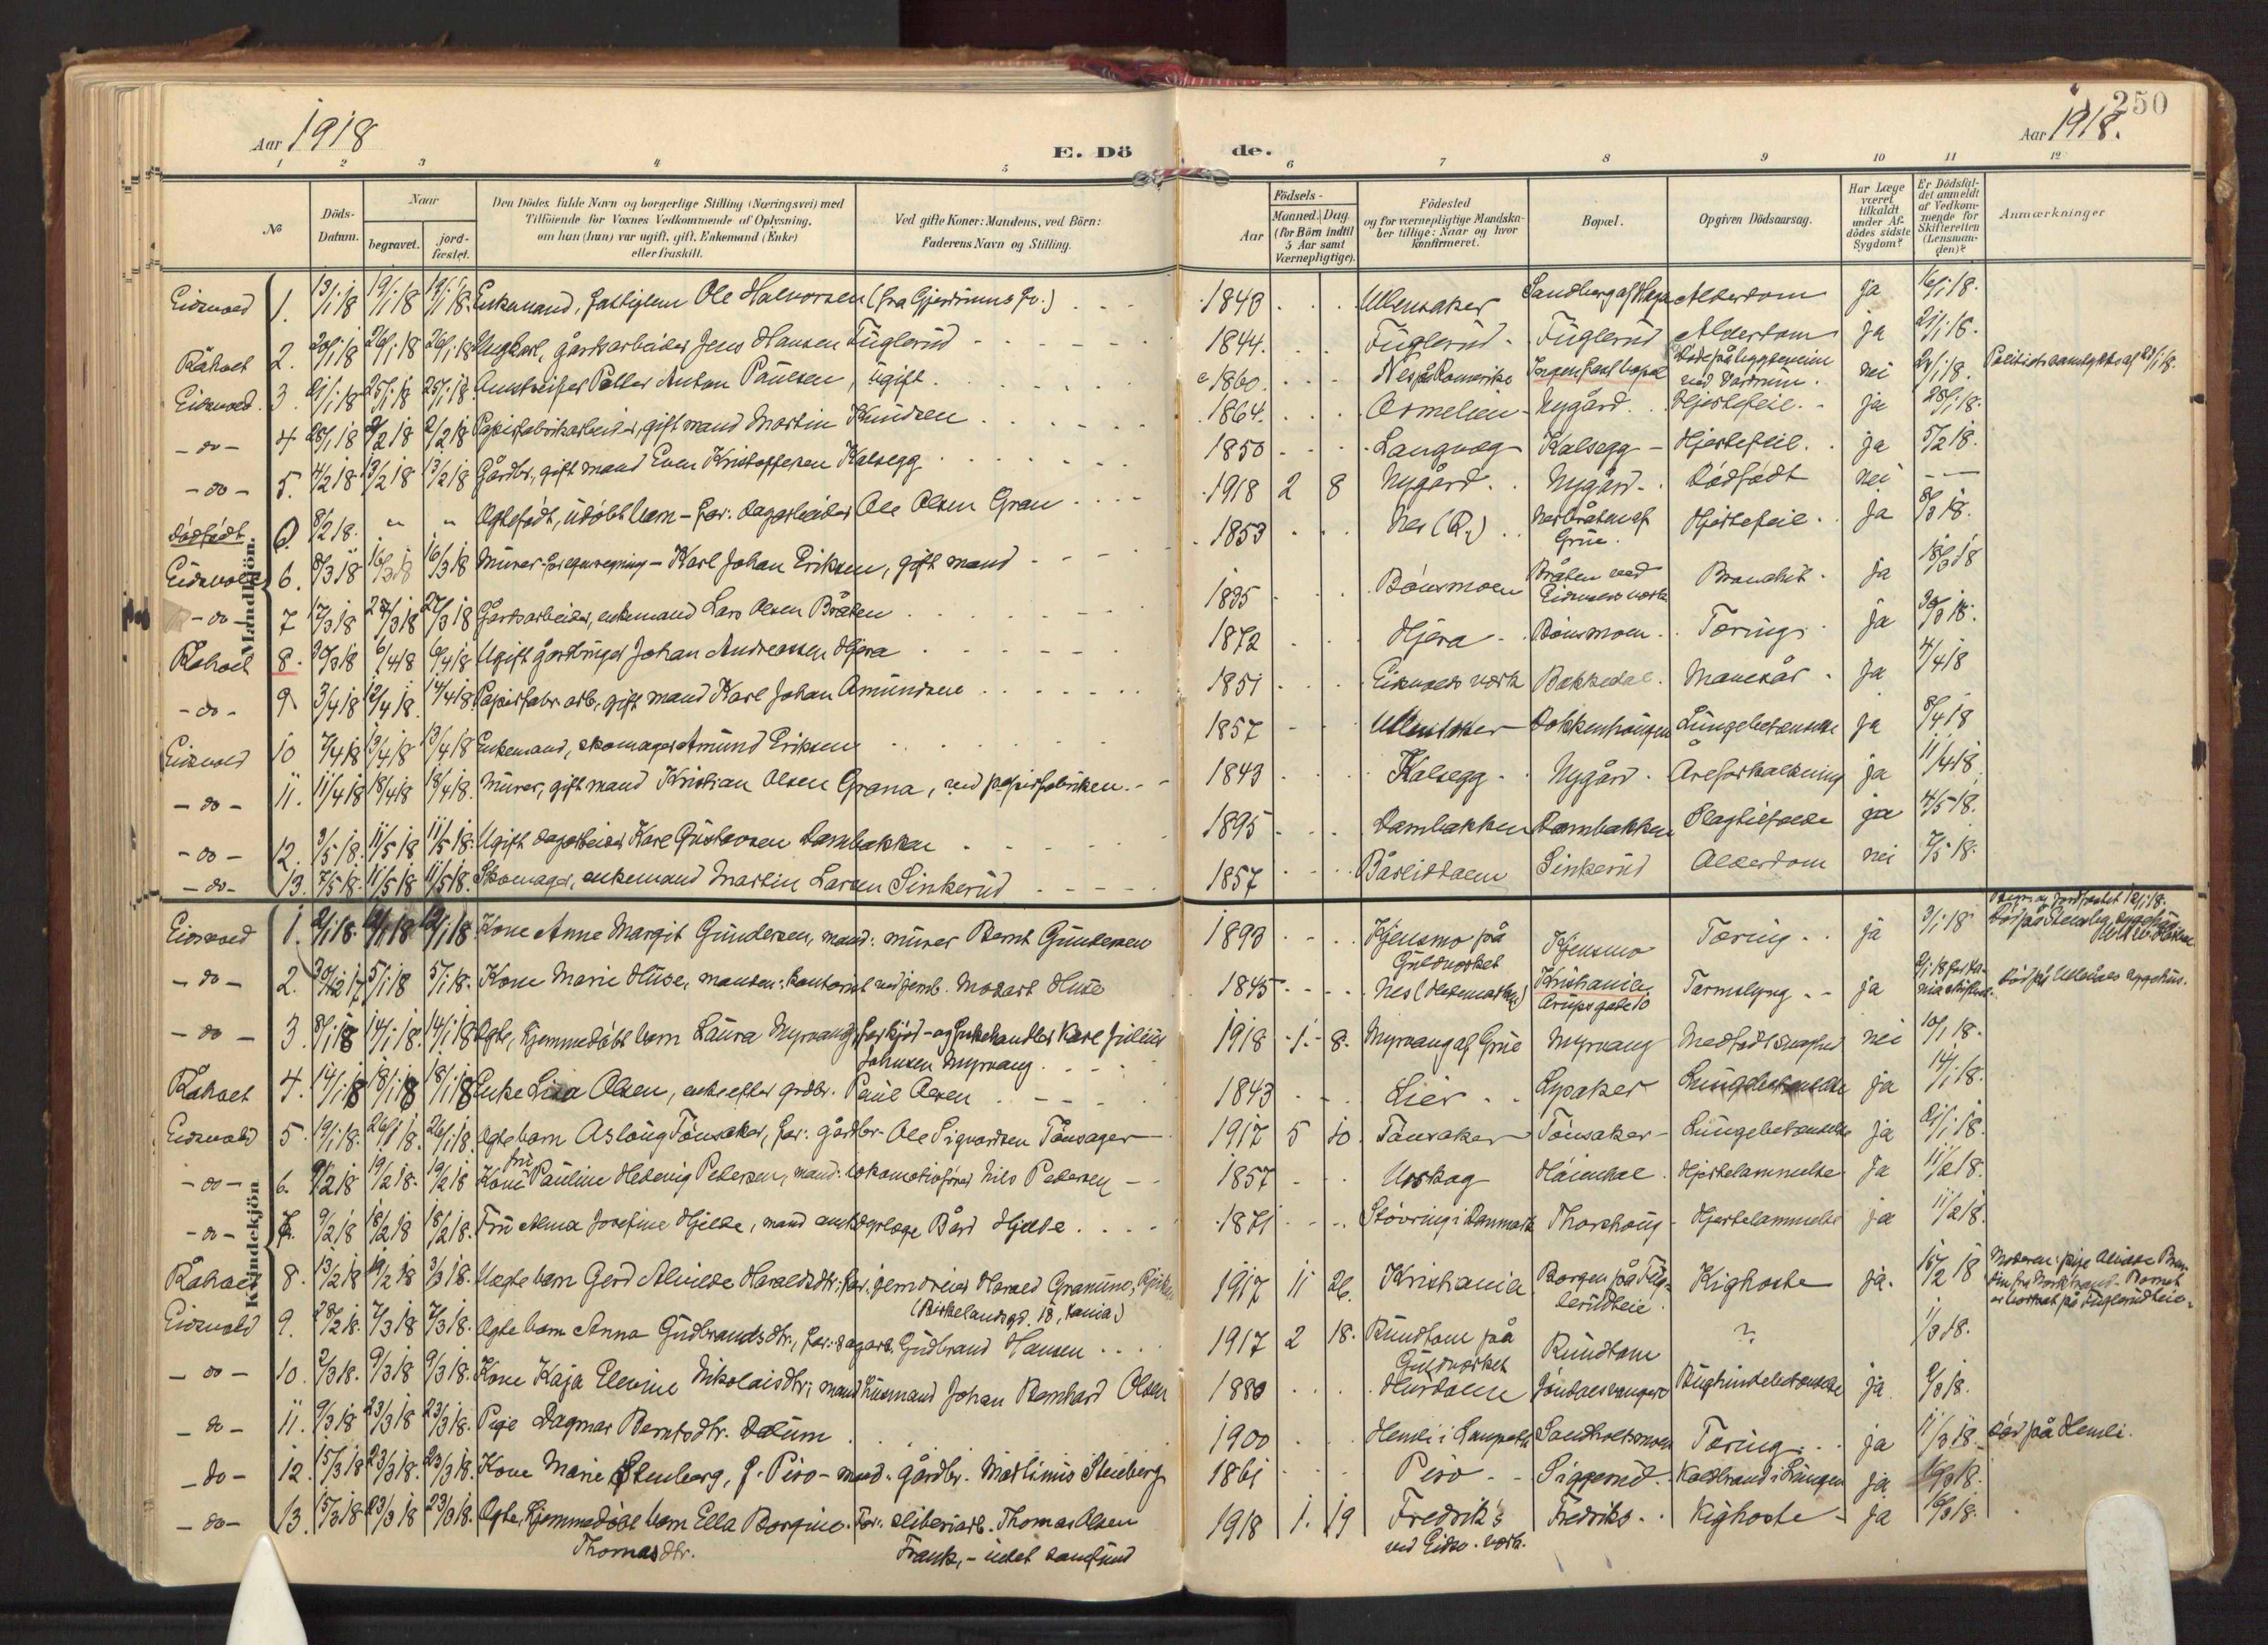 250
Aar 1918
E. Dö de.
Aar 1918.
1 2 3 4 5 6 7 8 9 10 11 12
No
Döds-Datum.
Naar
begravet.
jord-fæstet.
Den Dödes fulde Navn og borgerlige Stilling (Næringsvei) med
Tilföiende for Voxnes Vedkommende af Oplysning,
om han (hun) var ugift, gift, Enkemand (Enke)
eller fraskilt.
Ved gifte Koner: Mandens, ved Börn:
Faderens Navn og Stilling.
Födsels-
Aar
Maaned. Dag
(for Börn indtil
5 Aar samt
Værnepligtige).
Födested
og for værnepligtige Mandska-
ber tillige: Naar og hvor
konfirmeret.
Bopæl.
Opgiven Dödsaarsag.
Har Læge
været
tilkaldt
under Af-
dödes sidste
Sygdom?
Er Dödsfal-
det anmeldt
af Vedkom-
mende for
Skifteretten
(Lensman-
den)?
Anmærkninger
Mandkjön.
Eidsvold 1. 13/1 18 19/1 18 19/1 18. Enkemand, Ole Halvorsen (fra Gjerdrums Pr.) 1843 Ullensaker Sandberg af Haga Alderdom ja 16/1 18.
Råholt 2. 20/1 18 26/1 18 26/1 18 Ungkarl, gårdsarbeider Jens Hansen Fuglerud 1844. Fuglerud Fuglerud Alderdom ja 21/1 18.
Eidsvold. 3. 21/1 18 25/1 18 25/1 18. Peller Anton Paulsen, ugift. 1860. Nes på Romerike Ingen fast bopæl nei
-do- 4 28/1 18 2/2 18 2/2 18 Papirfabrikarbeider, gift mand Martin Knudsen 1864. Nygård Hjertefeil. ja 28/1 18.
-do- 5. 4/2 18 13/2 18 13/2 18 Gårdbr., gift mand Even Kristoffersen Kalsegg 1850 Kalsegg Hjertefeil. ja 5/2 18.
Dødfødt 8/2 18. " " Ægtefødt, udøbt barn - far: dagarbeider Ole Olsen Gran 1918 2 8 Nygård Nygård Dødfødt nei -
Eidsvold 6. 8/3 18 16/3 18 16/3 18 Murer for egen regning - Karl Johan Eriksen, gift mand 1853 Nes (R.) Nesbråten af Grue. Hjertefeil ja 8/3 18.
-do- 7 17/3 18 27/3 18 27/3 18 Gårdsarbeider, enkemand Lars Olsen Bråten 1835 Bönsmoen Bråten ved Eidsvolds værk Bronchit ja 18/3 18
Råholt 8. 30/3 18 6/4 18 6/4 18 Ugift gårdbruger Johan Andreassen Hjera 1872 Hjera Bönsmoen Tæring ja 30/3 18.
-do- 9 3/4 18 12/4 18. 14/4 18. Papirfabr. arb., gift mand Karl Johan Amundsen 1851 Eidsvolds værk Bakkedal Mavesår ja 4/4 18
Eidsvold 10 7/4 18 13/4 18 13/4 18 Enkemand, skomager Amund Eriksen 1857 Ullensaker Dokkenhaugen Lungebetændelse ja 8/4 18
-do- 11. 11/4 18 18/4 18 18/4 18. Murer, gift mand Kristian Olsen Grana, ved papirfabriken. 1843 Kalsegg Nygård Åreforkalkning ja 11/4 18
-do- 12. 3/5 18. 11/5 18 11/5 18. Ugift dagarbeider Karl Gustavsen Dambakken 1895 Dambakken Dambakken Slagtilfælde ja 4/5 18.
-do- 13. 7/5 18. 11/5 18 11/5 18. Skomager, enkemand Martin Larsen Sinkerud 1857 Bårlidalen Sinkerud Alderdom nei 7/5 18.
Kvindekjön
Eidsvold 1. 2/1 18. 12/1 18 12/1 18. Kone Anne Margit Gundersen, mand: murer Bernt Gundersen 1893 Kjensmo på Guldverket Kjensmo Tæring ja 3/1 18
-do- 2. 30/12 17 5/1 18 5/1 18. Kone Marie Huse, manden: kontorist ved jernb. Modart Huse 1845 Nes (Hedemarken) Kristiania Arupsgade 10 Tarmslyng ja Død på Ullevåls sygehus.
-do- 3. 8/1 18 14/1 18. 14/1 18 Ægte, hjemmedøbt barn Laura Myrvang, far kjød- og fiskehandler Karl Julius
Johnsen Myrvang 1918 1 8. Myrvang af Grue Myrvang Medfødt svaghed nei 10/1 18.
Råholt 4. 14/1 18 18/1 18 18/1 18 Enke Lisa Olsen, enke efter grdbr. Paul Olsen 1843 Lier Lysaker Lungebetændelse ja 14/1 18.
Eidsvold 5. 19/1 18. 26/1 18. 26/1 18. Ægte barn Aslaug Tönsaker, far: gårdbr. Ole Sigvardsen Tönsager 1917 5 10. Tönsaker Tönsaker Lungebetændelse ja 21/1 18.
-do- 6. 9/2 18 19/2 18. 19/2 18 Kone fru Pauline Hedevig Pedersen, mand: lokomotivfører Nils Pedersen 1857 Urskog Hjertelammelse ja 11/2 18.
-do- 7. 9/2 18 18/2 18 18/2 18. Fru Alma Josefine Hjelde, mand amtsdyrlæge Bård Hjelde 1871 Støvring i Danmark Thorshaug Hjertelammelse ja 11/2 18.
Råholt 8. 13/2 18 19/2 18 3/3 18. Uægte barn Gerd Alvilde Haraldsdtr. far: jerndreier Harald Granmo,
(Birkelandsgd. 18, Kania) 1917 11 26. Kristiania Borgen på Fuglerudeie Kighoste ja. 15/2 18
Eidsvold 9. 28/2 18. 7/3 18 7/3 18. Ægte barn Anna Gudbrandsdtr., far: dagarb. Gudbrand Hansen 1917 2 18. Rundtom på Guldverket Rundtom ? 1/3 18.
-do- 10. 2/3 18. 9/3 18 9/3 18. Kone Kaja Elevine Nikolaisdtr., mand husmand Johan Bernhard Olsen 1880 Hurdalen Bughindebetændelse ja 2/3 18.
-do- 11. 9/3 18 23/3 18 23/3 18. Pige Dagmar Berntsdtr. Dalum 1900 Sandholtsmoen Tæring ja 11/3 18. Død på Hemli.
-do- 12. 15/3 18 23/3 18. 23/3 18. Kone Marie Stenberg, f. Piro - mand: gårdbr. Martinius Stenberg 1861 Piro Siggerud Koldbrand i Lungen ja 16/3 18.
-do- 13. 15/3 18 23/3 18 23/3 18. Ægte, hjemmedøbt barn Ella Borgine Far: sliberiarb. Thomas Olsen
Thomasdtr. Frank, - udet samfund 1918 1. 19 Fredrik's ved Eidsv. værk. Fredriks Kighoste ja 16/3 18.